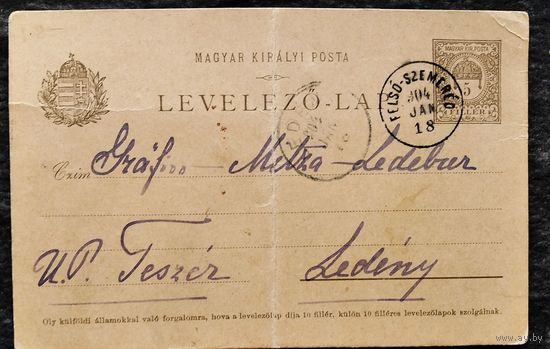 MAGYAR KIRÁLYI POSTA
MAGYAR KIR. POSTA
5
FILLÉR
LEVELEZŐ-LAP
FELSŐ-SZEMERÉD
904
JAN
18
Czim
Metza-Ledebur
U.P. Teszér
Ledény
Oly külföldi államokkal való forgalomra, hova a levelezőlap díja 10 fillér, külön 10 filléres levelezőlapok szolgálnak.
www.ay.by